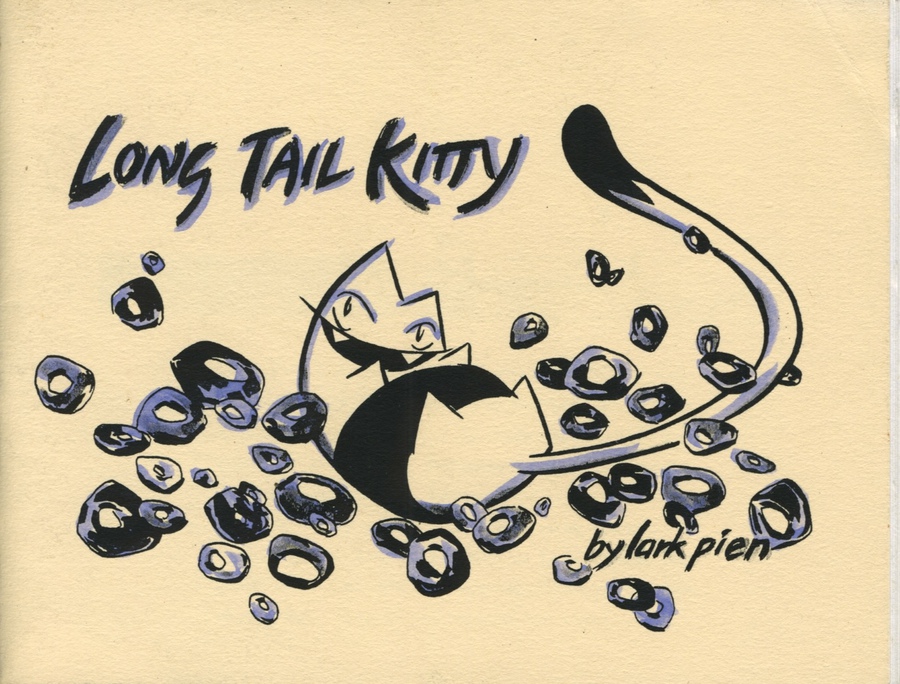 Long Tail Kitty
by lark pien